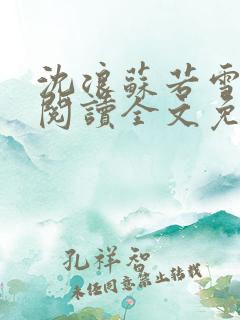 沈浪蘇若雪
閱讀全文免
孔祥智
未经同意禁止转载